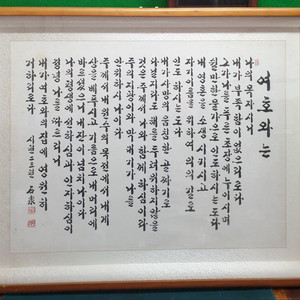 여호와는
나의 목자시니
내가 부족함이 없으리로다
그가 나를 푸른 초장에 누이시며
쉴만한 물가으로 인도하시는도다
내 영혼을 소생시키시고
자기 이름을 위하여 의의 길로
인도하시는도다
내가 사망의 음침한 골짜기로
다닐지라도 해를 두려워하지 않을
것은 주께서 나와 함께 하심이라
주의 지팡이와 막대기가 나를
안위하시나이다
주께서 내 원수의 목전에서 내게
상을 베푸시고 기름으로 내 머리에
바르셨으니 내 잔이 넘치나이다
나의 평생에 선하심과 인자하심이
정녕 나를 따르리니
내가 여호와의 집에 영원히
거하리로다